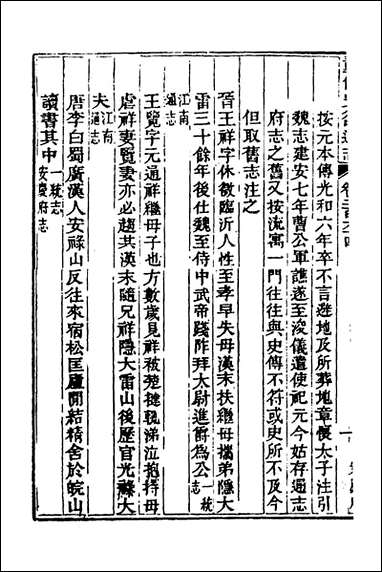 按元本傳光和六年卒不言避地及所葬地章懷太子注引
魏志建安七年曹公軍譙遂至浚儀遣使祀元今姑存通志
府志之舊又按流寓一門往往與史傳不符或史所不及今
但取舊志注之
晉王祥字休徵臨沂人性至孝早失母漢末扶繼母攜弟隱大
雷三十餘年後仕魏至侍中武帝踐阼拜太尉進爵為公一統志
江南通志
王覽字元通祥繼母子也方數歲見祥被楚撻輒涕泣抱持母
虐祥妻覽妻亦必趨共漢末隨兄祥隱大雷山後歷官光祿大
夫江南通志
唐李白蜀廣漢人安祿山反往來宿松匡廬間結精舍於皖山
讀書其中一統志安慶府志